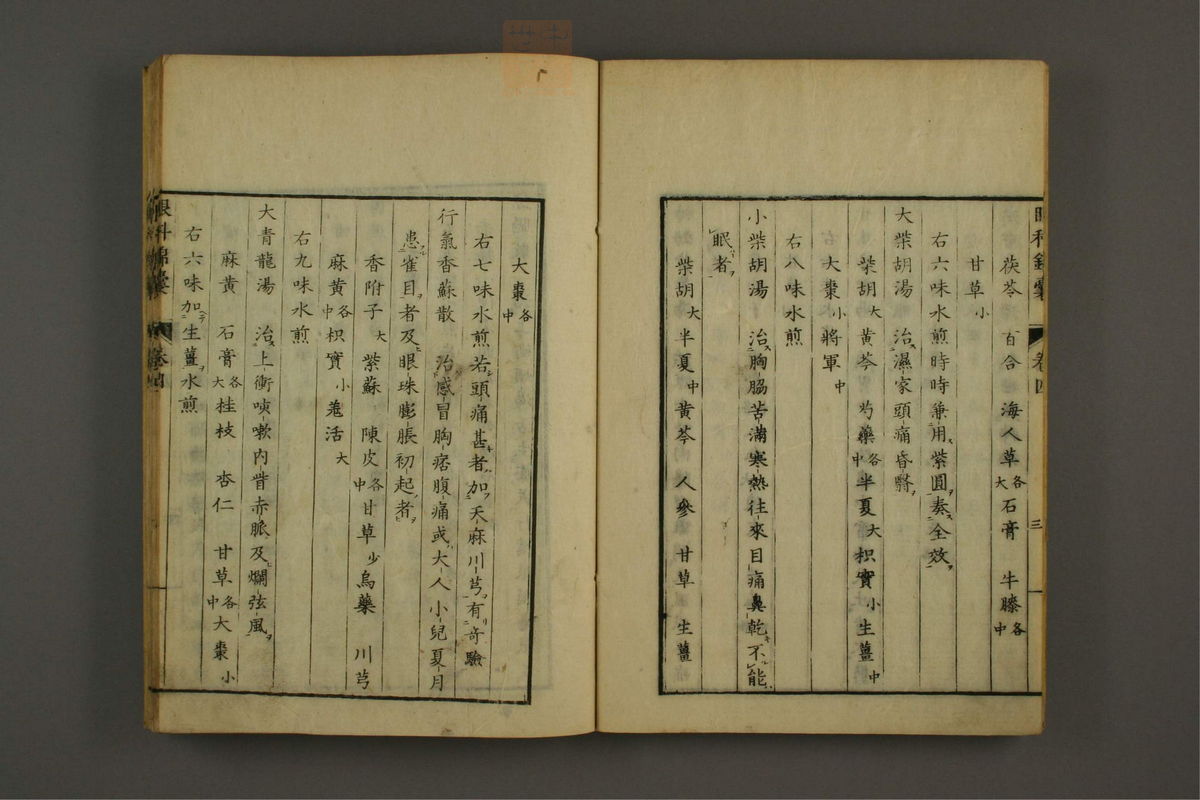 眼科錦囊 卷四 三
茯苓 百合 海人草各大 石膏 牛膝各中
甘草小
右六味水煎時時兼用紫圓奏全效
大柴胡湯 治濕家頭痛昏翳
柴胡大 黃芩 芍藥各中 半夏大 枳實小 生薑中
大棗小 將軍中
右八味水煎
小柴胡湯 治胸脇苦滿寒熱往來目痛鼻乾不能
眠者
柴胡大 半夏中 黃芩 人參 甘草 生薑
大棗各中
右七味水煎若頭痛甚者加天麻川芎有奇驗
行氣香蘇散 治感冒胸痞腹痛或大人小兒夏月
患雀目者及眼珠膨脹初起者
香附子大 紫蘇 陳皮各中 甘草少 烏藥 川芎
麻黃各中 枳實小 羗活大
右九味水煎
大青龍湯 治上衝咳嗽内眥赤脈及爛弦風
麻黃 石膏各大 桂枝 杏仁 甘草各中 大棗小
右六味加生薑水煎
眼科錦囊 卷四